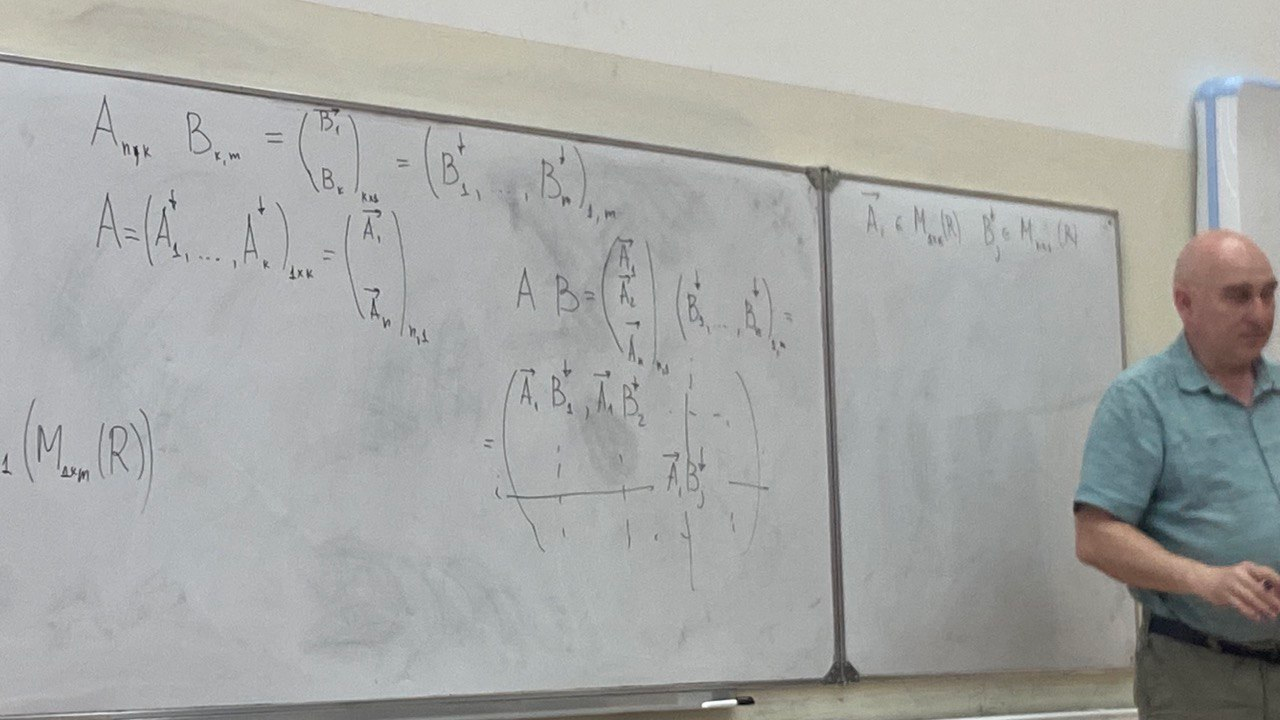 A_{n,k} B_{k,m} = (\vec{B}_1 B_k)_{k×1} = (B_1^↓, ..., B_m^↓)_{1,m}
A = (A_1^↓, ..., A_k^↓)_{1×k} = (\vec{A}_1 \vec{A}_n)_{n,1}
A B = (\vec{A}_1 \vec{A}_2 \vec{A}_n)_{n,1} (B_1^↓, ..., B_m^↓)_{1,m} =
= (\vec{A}_1 B_1^↓, \vec{A}_1 B_2^↓
i \vec{A}_i B_j^↓ )
1 (M_{1×m}(R))
\vec{A}_i ∈ M_{1×k}(R) B_j^↓ ∈ M (R)